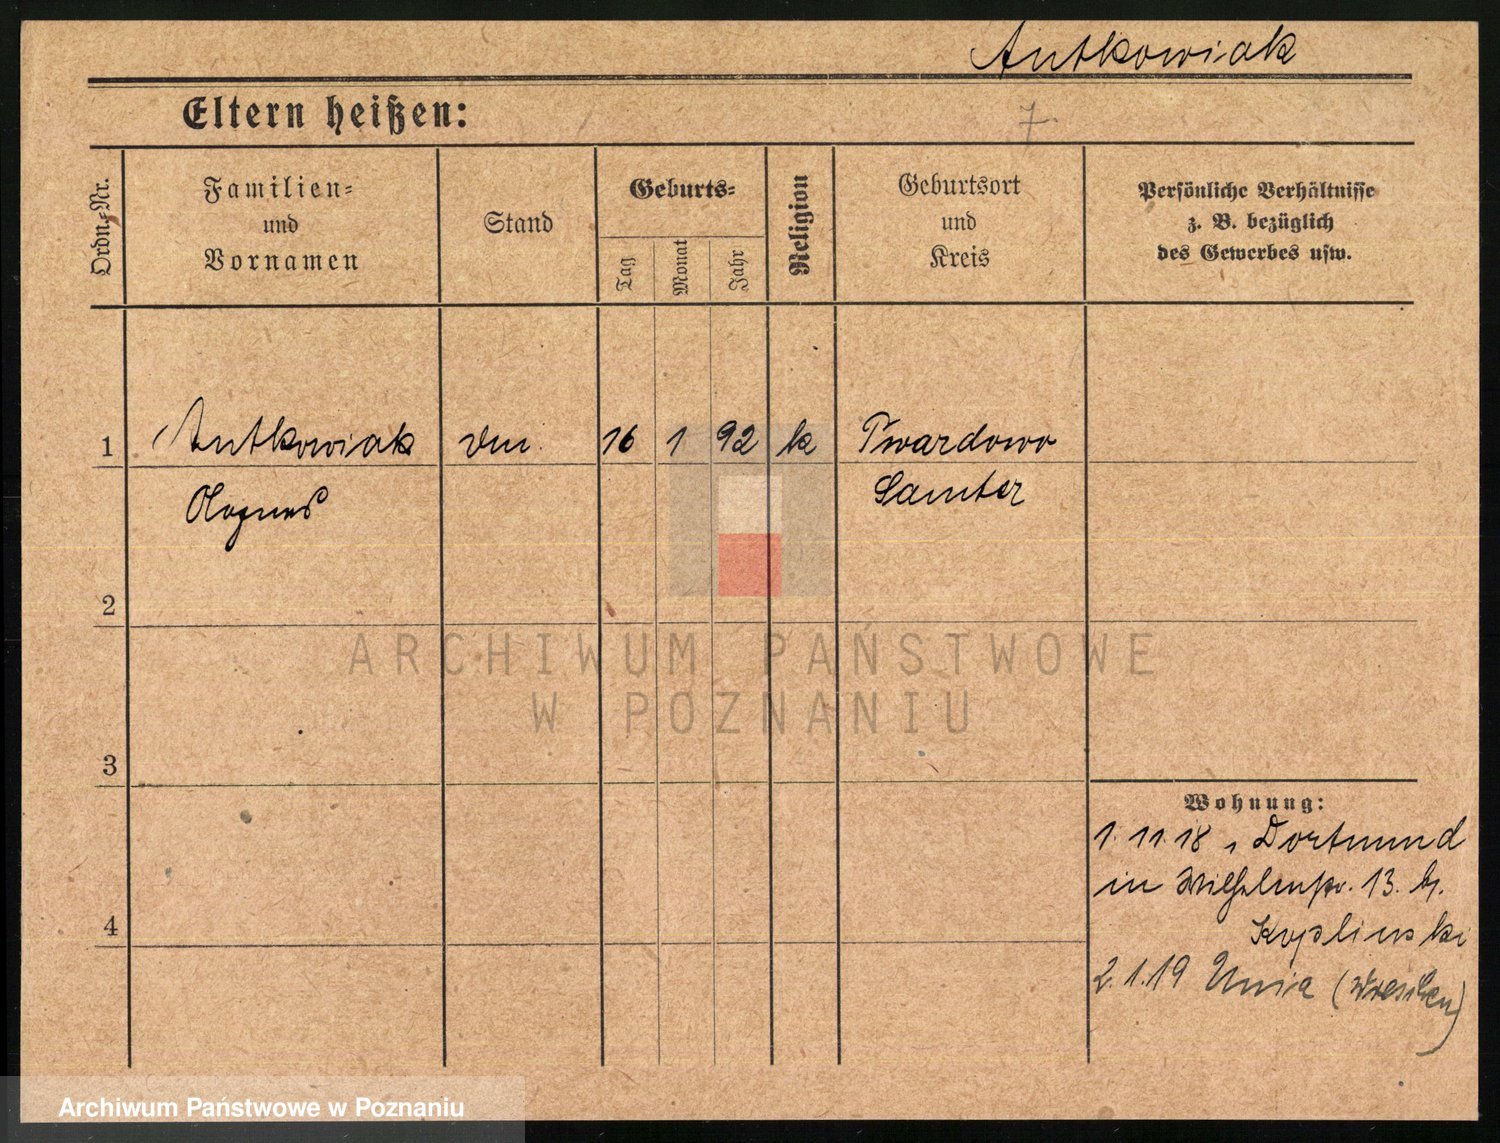 Antkowiak
Eltern heißen:
7.
Ordn.-Nr.
Familien-
und
Vornamen
Stand
Geburts-
Tag
Monat
Jahr
Religion
Geburtsort
und
Kreis
Persönliche Verhältnisse
z. B. bezüglich
des Gewerbes usw.
1 Antkowiak 16 1 92 k Twardowo
Agnes Samter
2
3
4
Wohnung:
1. 11. 18 Dortmund
in Wilhelmstr. 13. b.
2. 1. 19 Unia (Wreschen)
ARCHIWUM PAŃSTWOWE
W POZNANIU
Archiwum Państwowe w Poznaniu